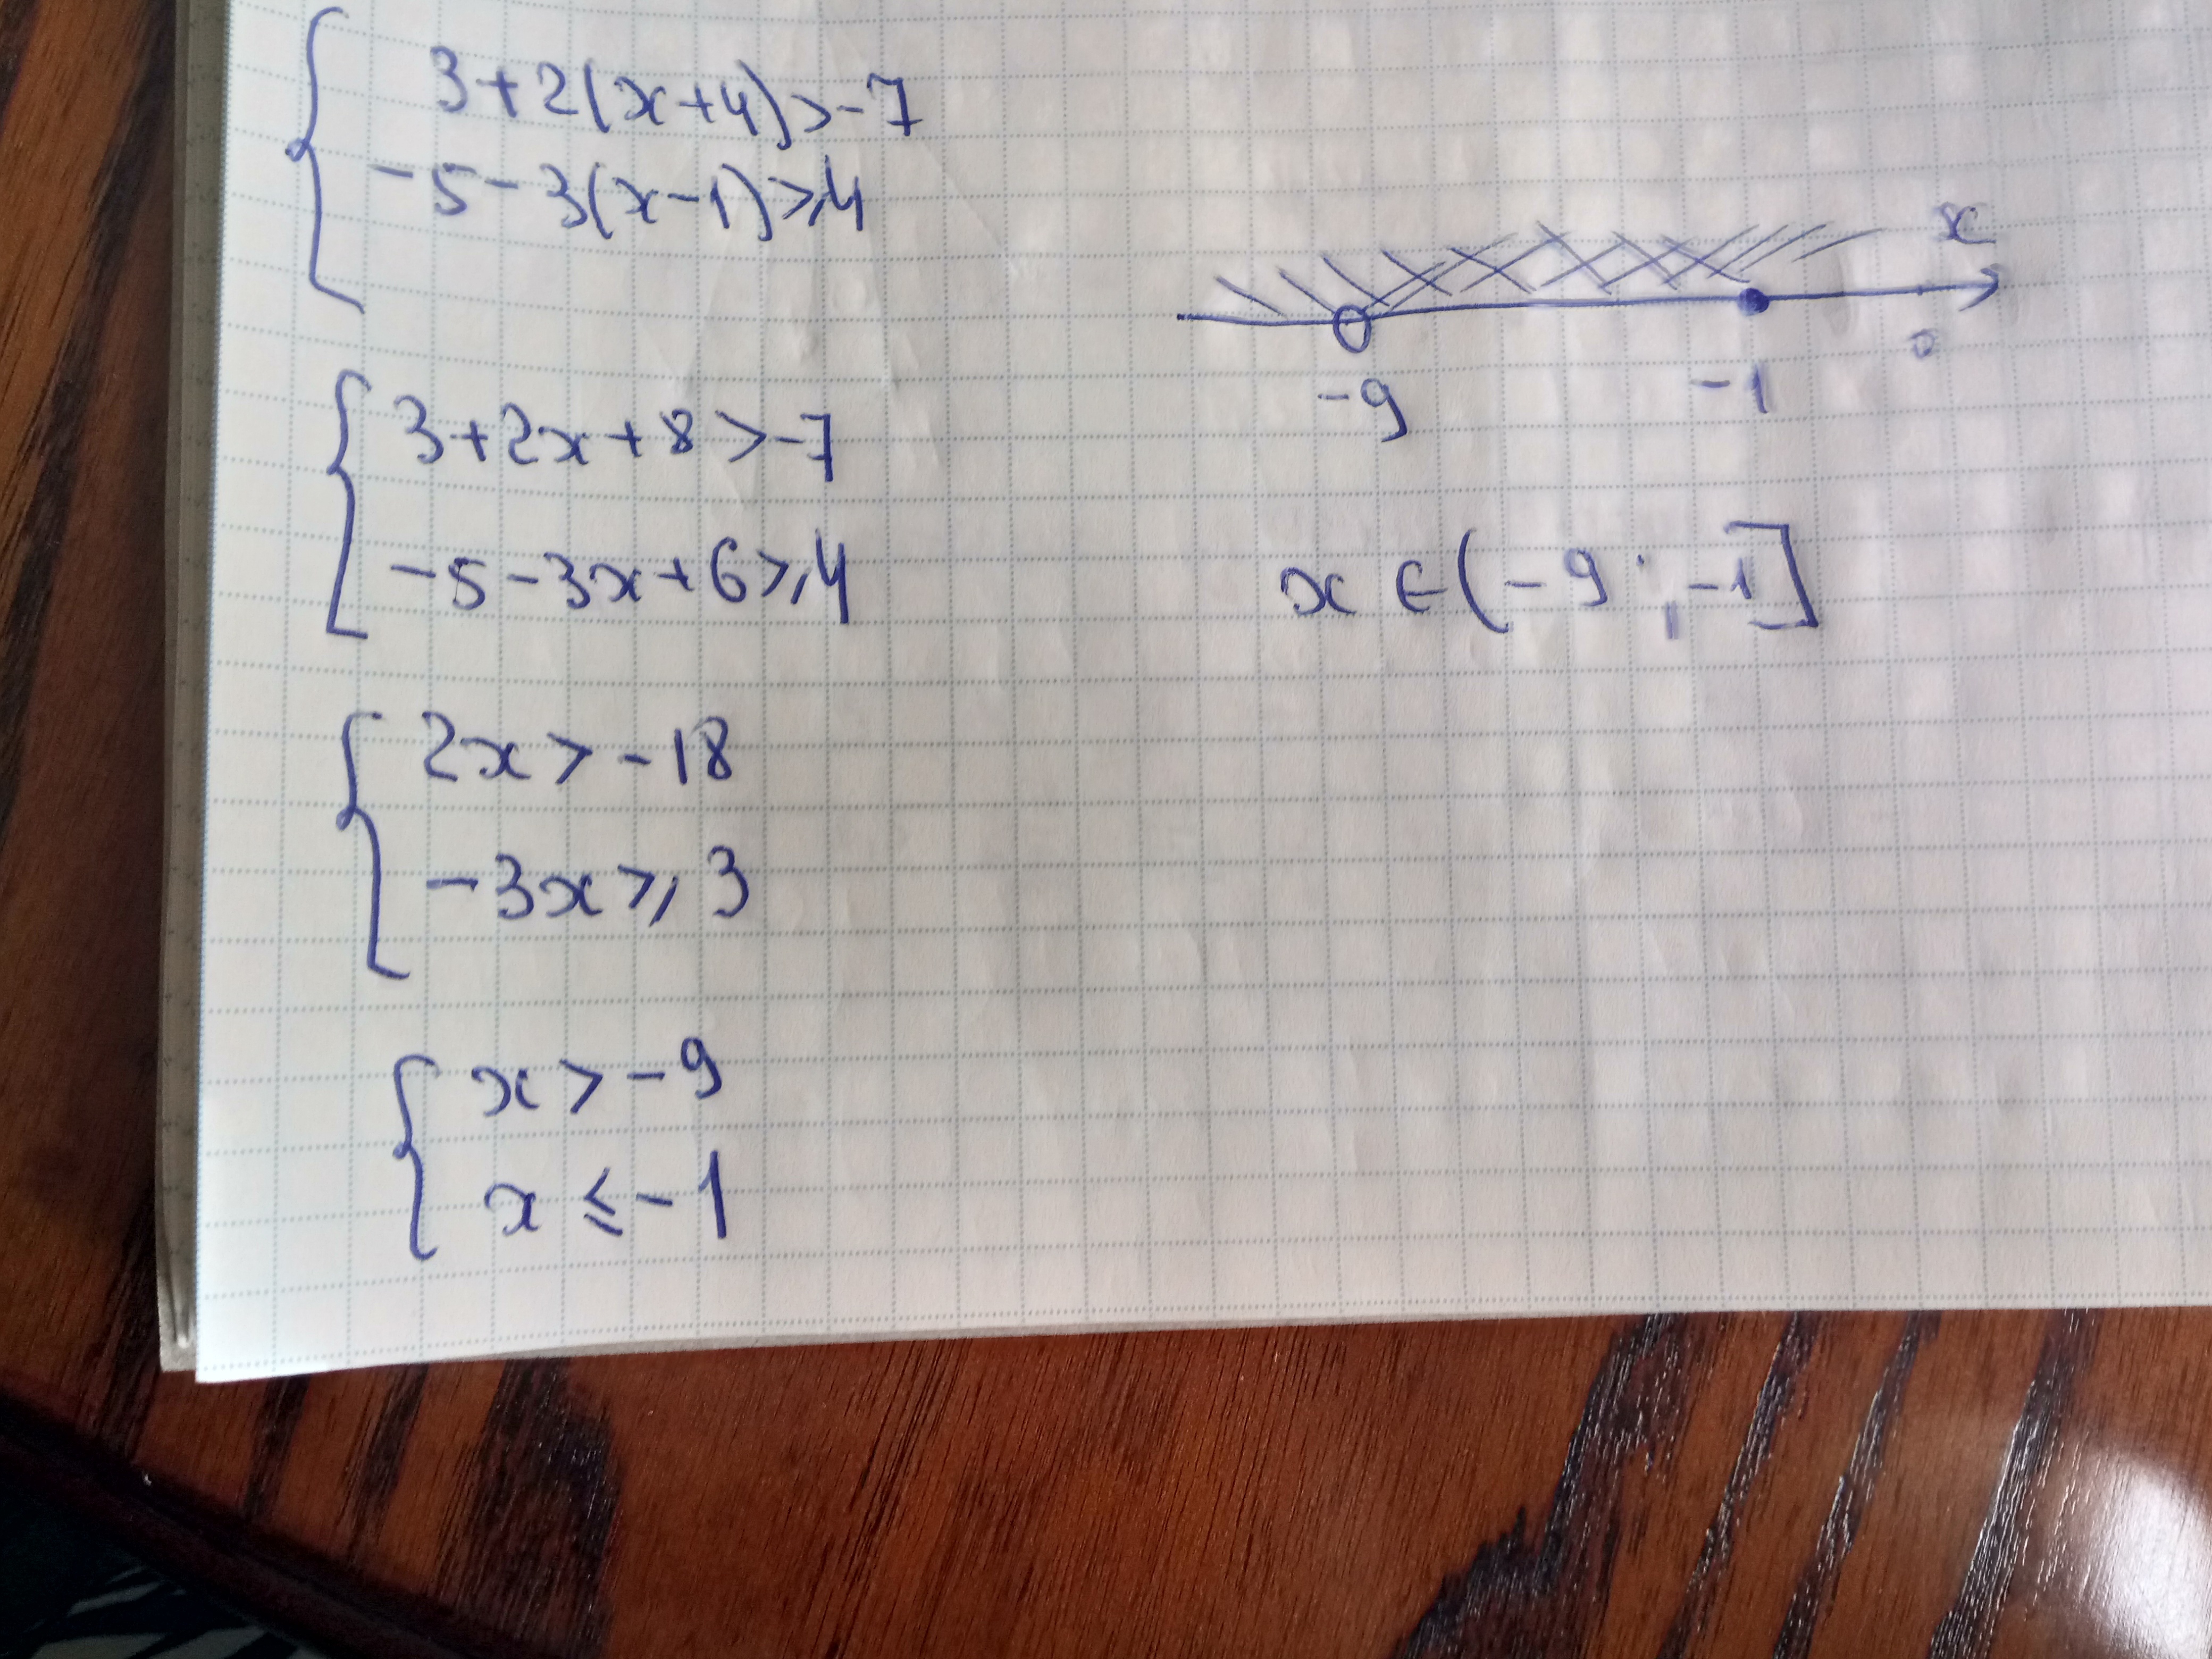 3+2(x+4)>-7
-5-3(x-1)≥4
3+2x+8>-7
-5-3x+6≥4
2x>-18
-3x≥3
x>-9
x≤-1
x
-9 -1 0
x∈(-9;-1]